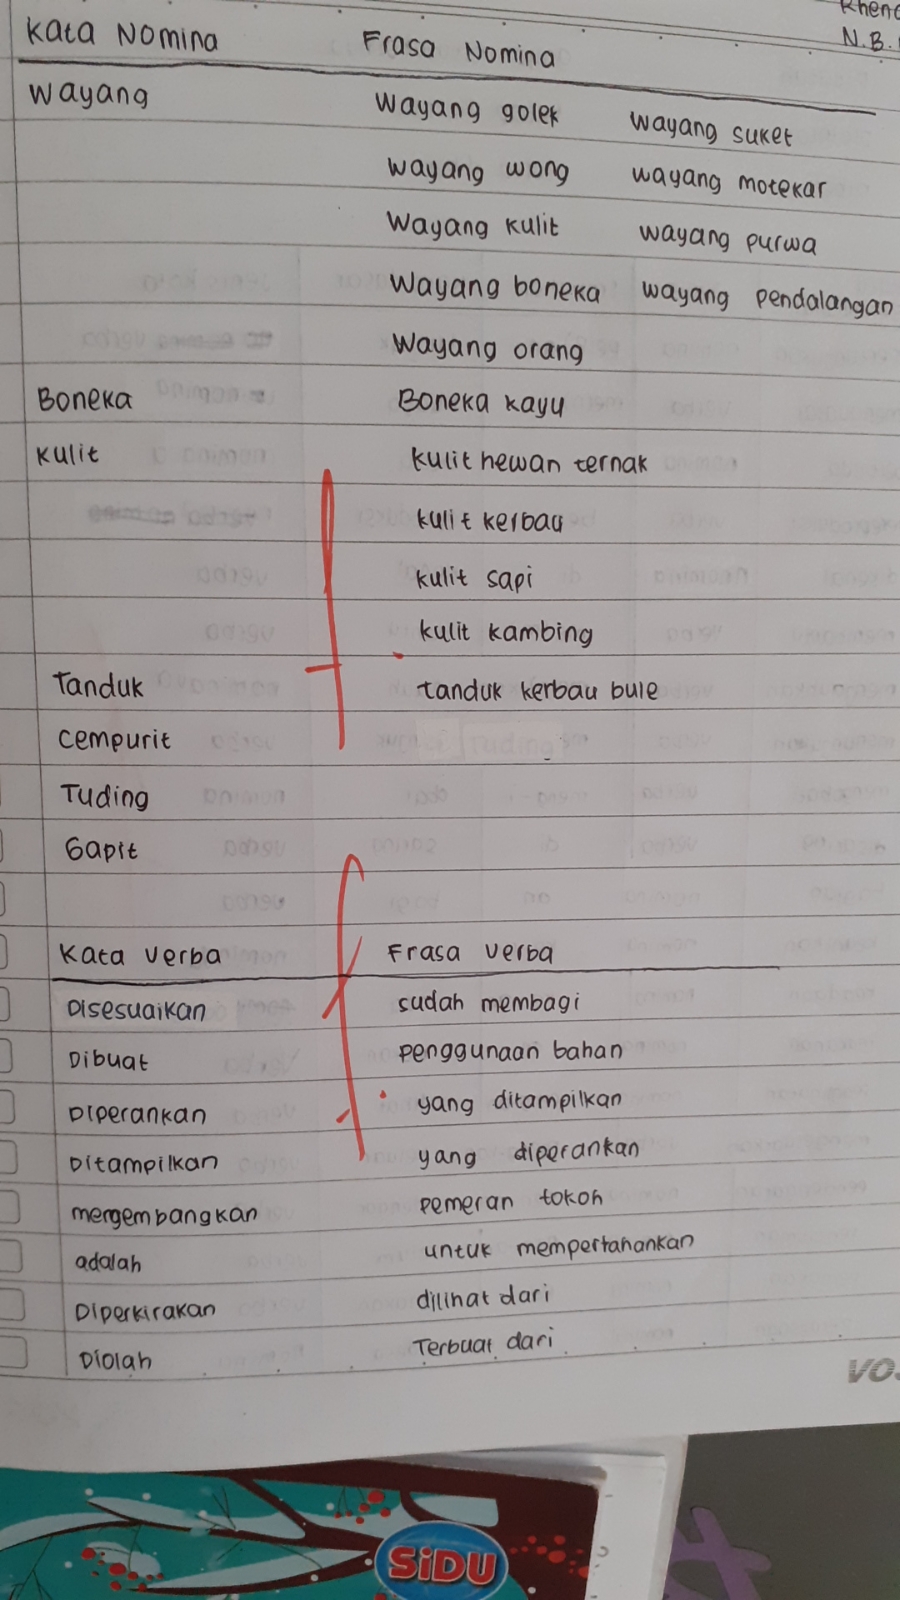 Khen
N.B.
Kata Nomina Frasa Nomina
Wayang Wayang golek wayang suket
wayang wong wayang motekar
Wayang kulit wayang purwa
Wayang boneka wayang pendalangan
Wayang orang
Boneka Boneka kayu
Kulit kulit hewan ternak
kulit kerbau
kulit sapi
kulit kambing
Tanduk tanduk kerbau bule
Cempurit
Tuding
Gapit
Kata Verba Frasa Verba
Disesuaikan sudah membagi
Dibuat penggunaan bahan
Diperankan yang ditampilkan
Ditampilkan yang diperankan
mengembangkan pemeran tokoh
adalah untuk mempertahankan
Diperkirakan dilihat dari
Diolah Terbuat dari
VO
SiDU